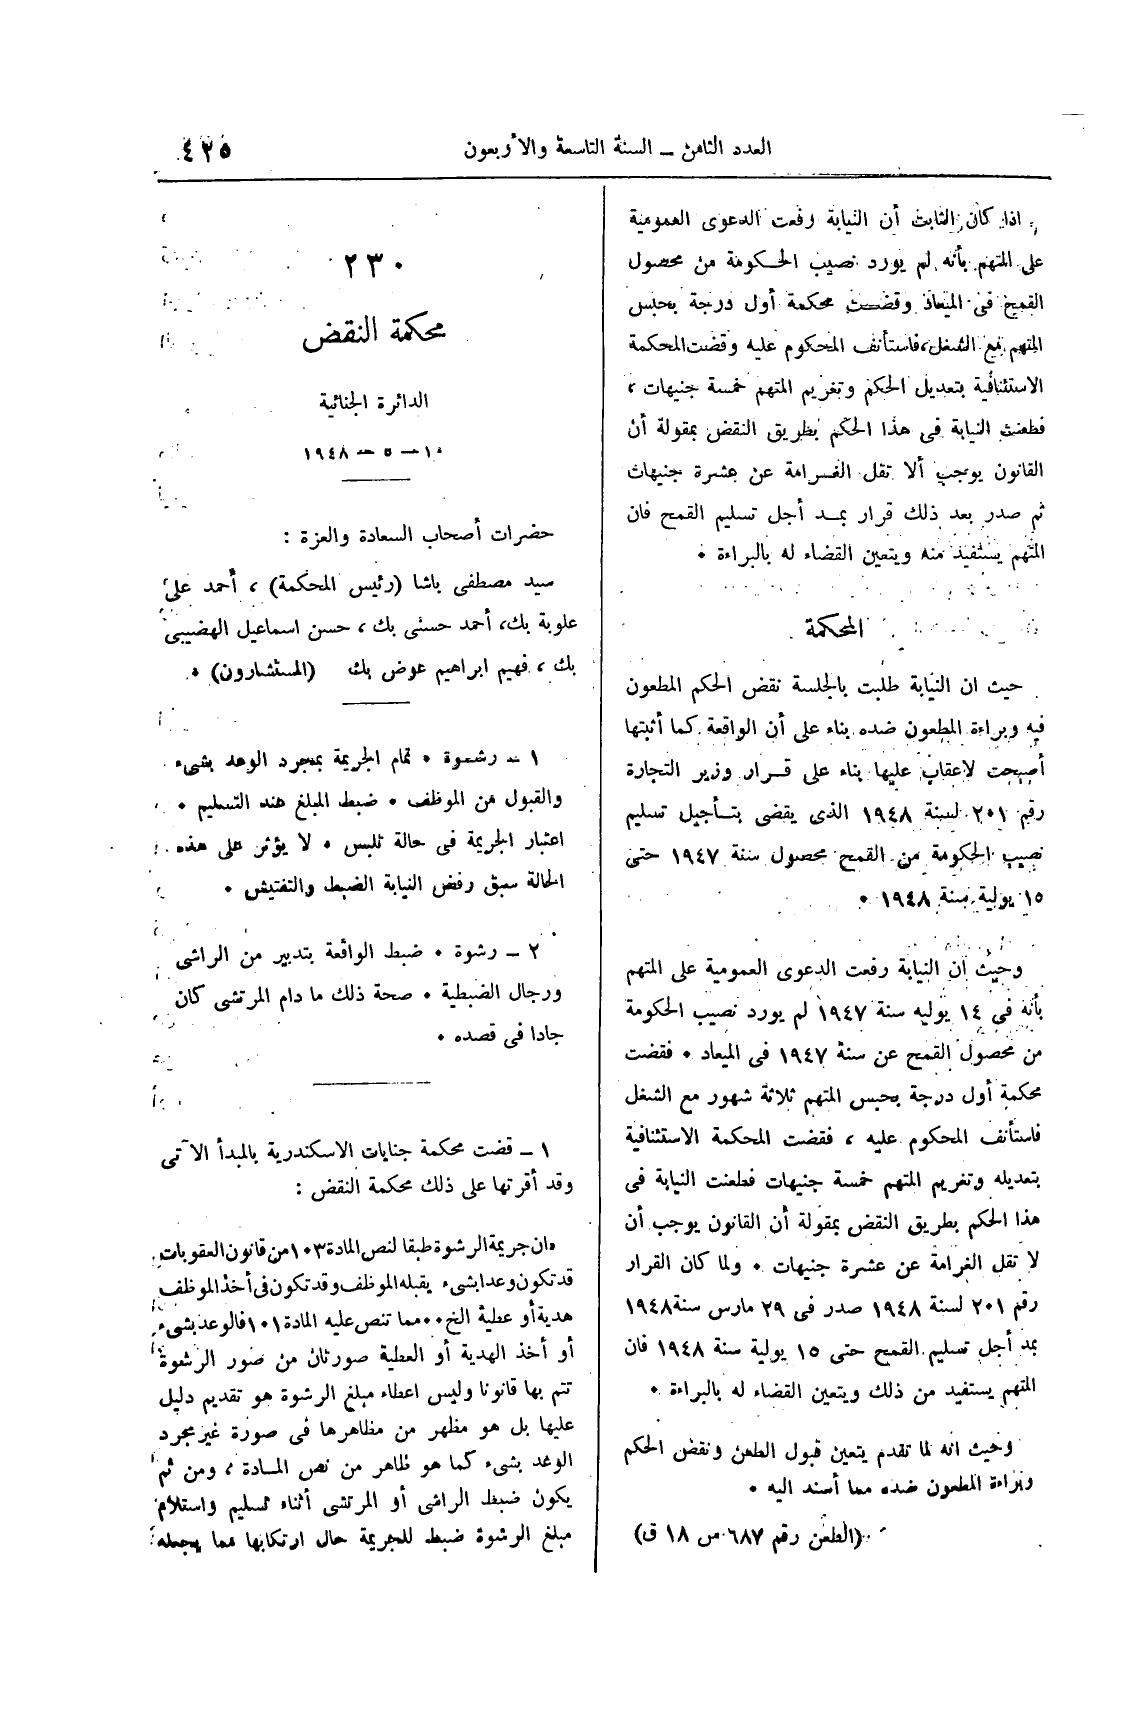 العدد الثامن ــ السنة التاسعة والأربعون
٤٢٥
اذا كان الثابت أن النيابة رفعت الدعوى العمومية
على المتهم بأنه لم يورد نصيب الحكومة من محصول
القمح فى الميعاد وقضت محكمة أول درجة بحبس
المتهم مع الشغل، فاستأنف المحكوم عليه وقضت المحكمة
الاستئنافية بتعديل الحكم وتغريم المتهم خمسة جنيهات ،
فطعنت النيابة فى هذا الحكم بطريق النقض بمقولة أن
القانون يوجب ألا تقل الغرامة عن عشرة جنيهات
ثم صدر بعد ذلك قرار بمد أجل تسليم القمح فان
المتهم يستفيد منه ويتعين القضاء له بالبراءة .
المحكمة
حيث ان النيابة طلبت بالجلسة نقض الحكم المطعون
فيه وبراءة المطعون ضده بناء على أن الواقعة كما أثبتها
أصبحت لاعقاب عليها بناء على قرار وزير التجارة
رقم ٢٠١ لسنة ١٩٤٨ الذى يقضى بتأجيل تسليم
نصيب الحكومة من القمح محصول سنة ١٩٤٧ حتى
١٥ يولية سنة ١٩٤٨ .
وحيث ان النيابة رفعت الدعوى العمومية على المتهم
بأنه فى ١٤ يوليه سنة ١٩٤٧ لم يورد نصيب الحكومة
من محصول القمح عن سنة ١٩٤٧ فى الميعاد . فقضت
محكمة أول درجة بحبس المتهم ثلاثة شهور مع الشغل
فاستأنف المحكوم عليه ، فقضت المحكمة الاستئنافية
بتعديله وتغريم المتهم خمسة جنيهات فطعنت النيابة فى
هذا الحكم بطريق النقض بمقولة أن القانون يوجب أن
لا تقل الغرامة عن عشرة جنيهات . ولما كان القرار
رقم ٢٠١ لسنة ١٩٤٨ صدر فى ٢٩ مارس سنة ١٩٤٨
بمد أجل تسليم القمح حتى ١٥ يولية سنة ١٩٤٨ فان
المتهم يستفيد من ذلك ويتعين القضاء له بالبراءة .
وحيث انه لما تقدم يتعين قبول الطعن ونقض الحكم
وبراءة المطعون ضده مما أسند اليه .
(الطعن رقم ٦٨٧ س ١٨ ق)
٢٣٠
محكمة النقض
الدائرة الجنائية
١٠ – ٥ – ١٩٤٨
حضرات أصحاب السعادة والعزة :
سيد مصطفى باشا (رئيس المحكمة) ، أحمد على
علوبة بك، أحمد حسنى بك ، حسن اسماعيل الهضيبى
بك ، فهيم ابراهيم عوض بك (المستشارون) .
١ – رشوة . تمام الجريمة بمجرد الوعد بشىء
والقبول من الموظف . ضبط المبلغ عند التسليم .
اعتبار الجريمة فى حالة تلبس . لا يؤثر على هذه
الحالة سبق رفض النيابة الضبط والتفتيش .
٢ – رشوة . ضبط الواقعة بتدبير من الراشى
ورجال الضبطية . صحة ذلك ما دام المرتشى كان
جادا فى قصده .
١ – قضت محكمة جنايات الاسكندرية بالمبدأ الآتى
وقد أقرتها على ذلك محكمة النقض :
«ان جريمة الرشوة طبقا لنص المادة ١٠٣ من قانون العقوبات
قد تكون وعدا بشىء يقبله الموظف وقد تكون فى أخذ الموظف
هدية أو عطية الخ .. مما تنص عليه المادة ١٠١ فالوعد بشىء
أو أخذ الهدية أو العطية صورتان من صور الرشوة
تتم بها قانونا وليس اعطاء مبلغ الرشوة هو تقديم دليل
عليها بل هو مظهر من مظاهرها فى صورة غير مجرد
الوعد بشىء كما هو ظاهر من نص المادة ، ومن ثم
يكون ضبط الراشى أو المرتشى أثناء تسليم واستلام
مبلغ الرشوة ضبط للجريمة حال ارتكابها مما يجعله